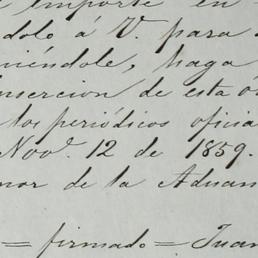 importe en
dolo á V. para
niéndole, haga
insercion de esta ó
los periódicos oficia
Novᵉ. 12 de 1859.
nor de la Aduan
= firmado = Juan